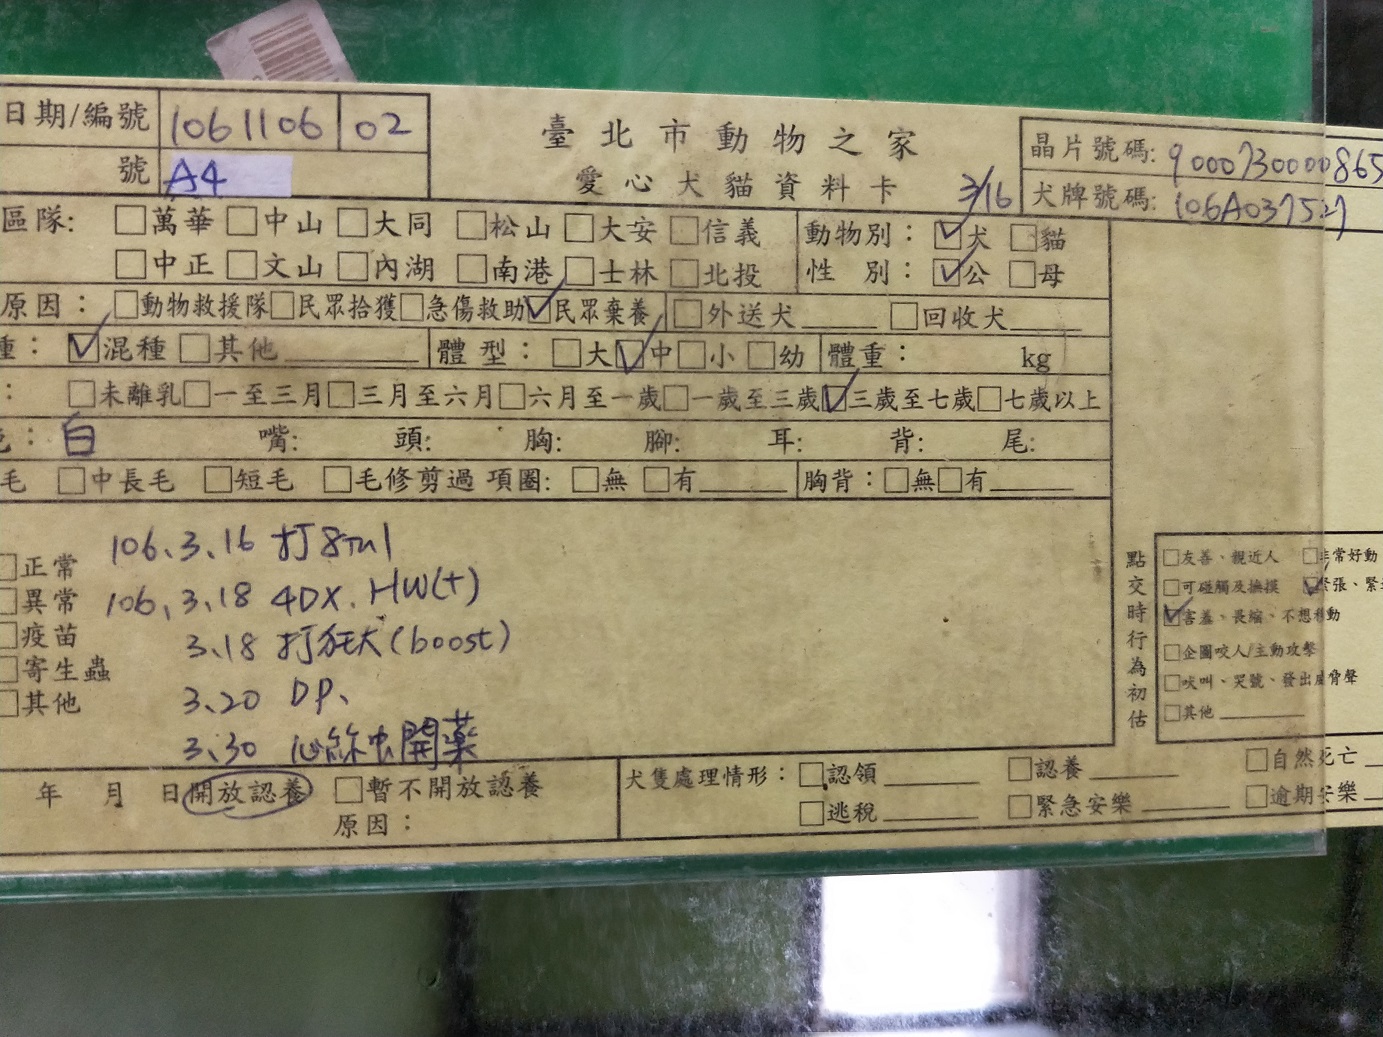 日期/編號 1061106 02
號 A4
臺北市動物之家
愛心犬貓資料卡 3/16
晶片號碼: 90007300000865
犬牌號碼: 106A037527
區隊: □萬華 □中山 □大同 □松山 □大安 □信義
□中正 □文山 □內湖 □南港 □士林 □北投
動物別: ☑犬 □貓
性別: ☑公 □母
原因: □動物救援隊 □民眾拾獲 □急傷救助 ☑民眾棄養 □外送犬 □回收犬
種: ☑混種 □其他 體型: □大 ☑中 □小 □幼 體重: kg
: □未離乳 □一至三月 □三月至六月 □六月至一歲 □一歲至三歲 ☑三歲至七歲 □七歲以上
色: 白 嘴: 頭: 胸: 腳: 耳: 背: 尾:
毛 □中長毛 □短毛 □毛修剪過 項圈: □無 □有 胸背: □無 □有
□正常
□異常
□疫苗
□寄生蟲
□其他
106.3.16 打8in1
106.3.18 4DX. HW(+)
3.18 打狂犬(boost)
3.20 DP、
3.30 心絲虫開藥
點交時行為初估
□友善、親近人 □非常好動
□可碰觸及撫摸 ☑緊張、緊
☑害羞、畏縮、不想移動
□企圖咬人/主動攻擊
□吠叫、哭號、發出威脅聲
□其他
年 月 日 開放認養 □暫不開放認養
原因:
犬隻處理情形: □認領 □認養 □自然死亡
□逃稅 □緊急安樂 □逾期安樂